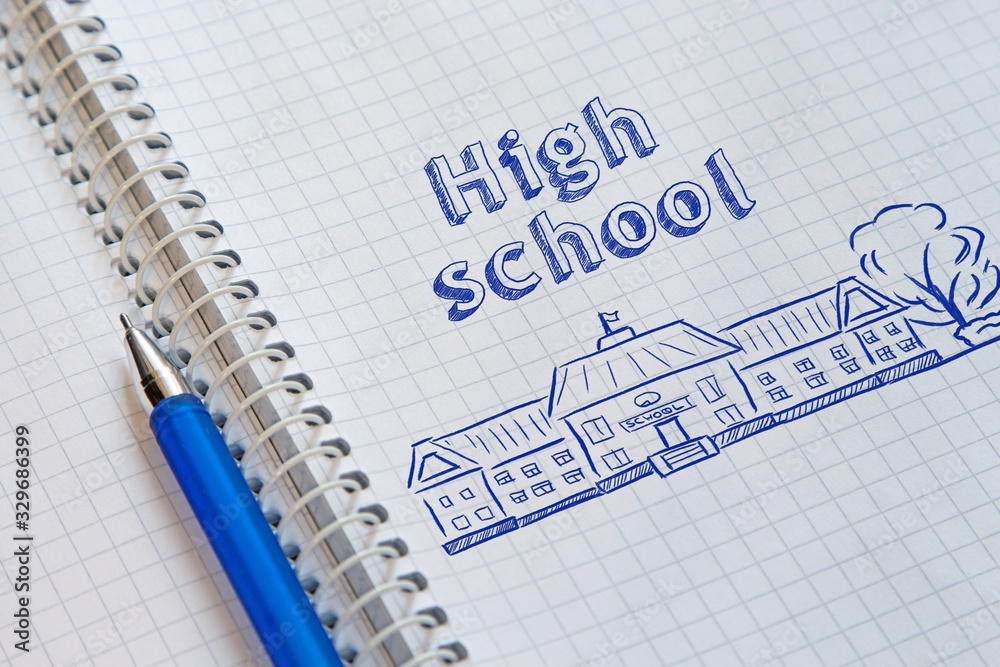 High
school
SCHOOL
Adobe Stock | #329686399